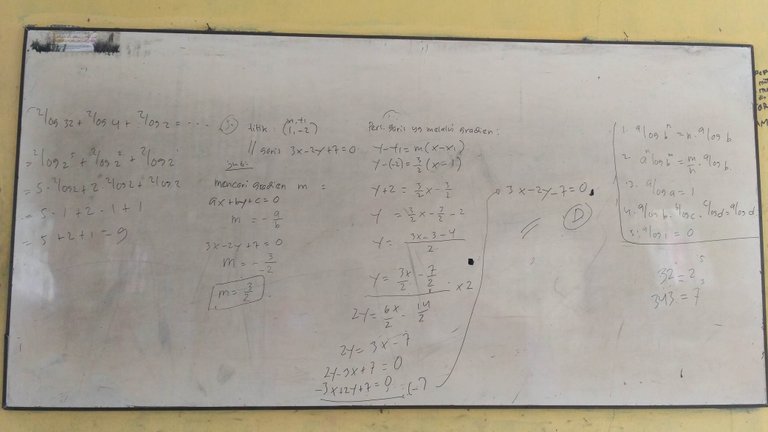 ²log 32 + ²log 4 + ²log 2 = ...
= ²log 2⁵ + ²log 2² + ²log 2¹
= 5 · ²log 2 + 2 ²log 2 + ²log 2
= 5 · 1 + 2 · 1 + 1
= 5 + 2 + 1 = 9
titik (1, -2)
x₁ y₁
// garis 3x - 2y + 7 = 0
mencari gradien m =
ax + by + c = 0
m = - a/b
3x - 2y + 7 = 0
m = - 3/-2
m = 3/2
Pers. garis yg melalui gradien :
y - y₁ = m (x - x₁)
y - (-2) = 3/2 (x - 1)
y + 2 = 3/2 x - 3/2
y = 3/2 x - 3/2 - 2
y = 3x - 3 - 4 / 2
y = 3x/2 - 7/2 × 2
2y = 6x/2 - 14/2
2y = 3x - 7
2y - 3x + 7 = 0
-3x + 2y + 7 = 0 : (-)
3x - 2y - 7 = 0
D
1. ᵃlog bⁿ = n · ᵃlog b
2. ᵃⁿlog bᵐ = m/n · ᵃlog b
3. ᵃlog a = 1
4. ᵃlog b · ᵇlog c · ᶜlog d = ᵃlog d
5. ᵃlog 1 = 0
32 = 2⁵
343 = 7³